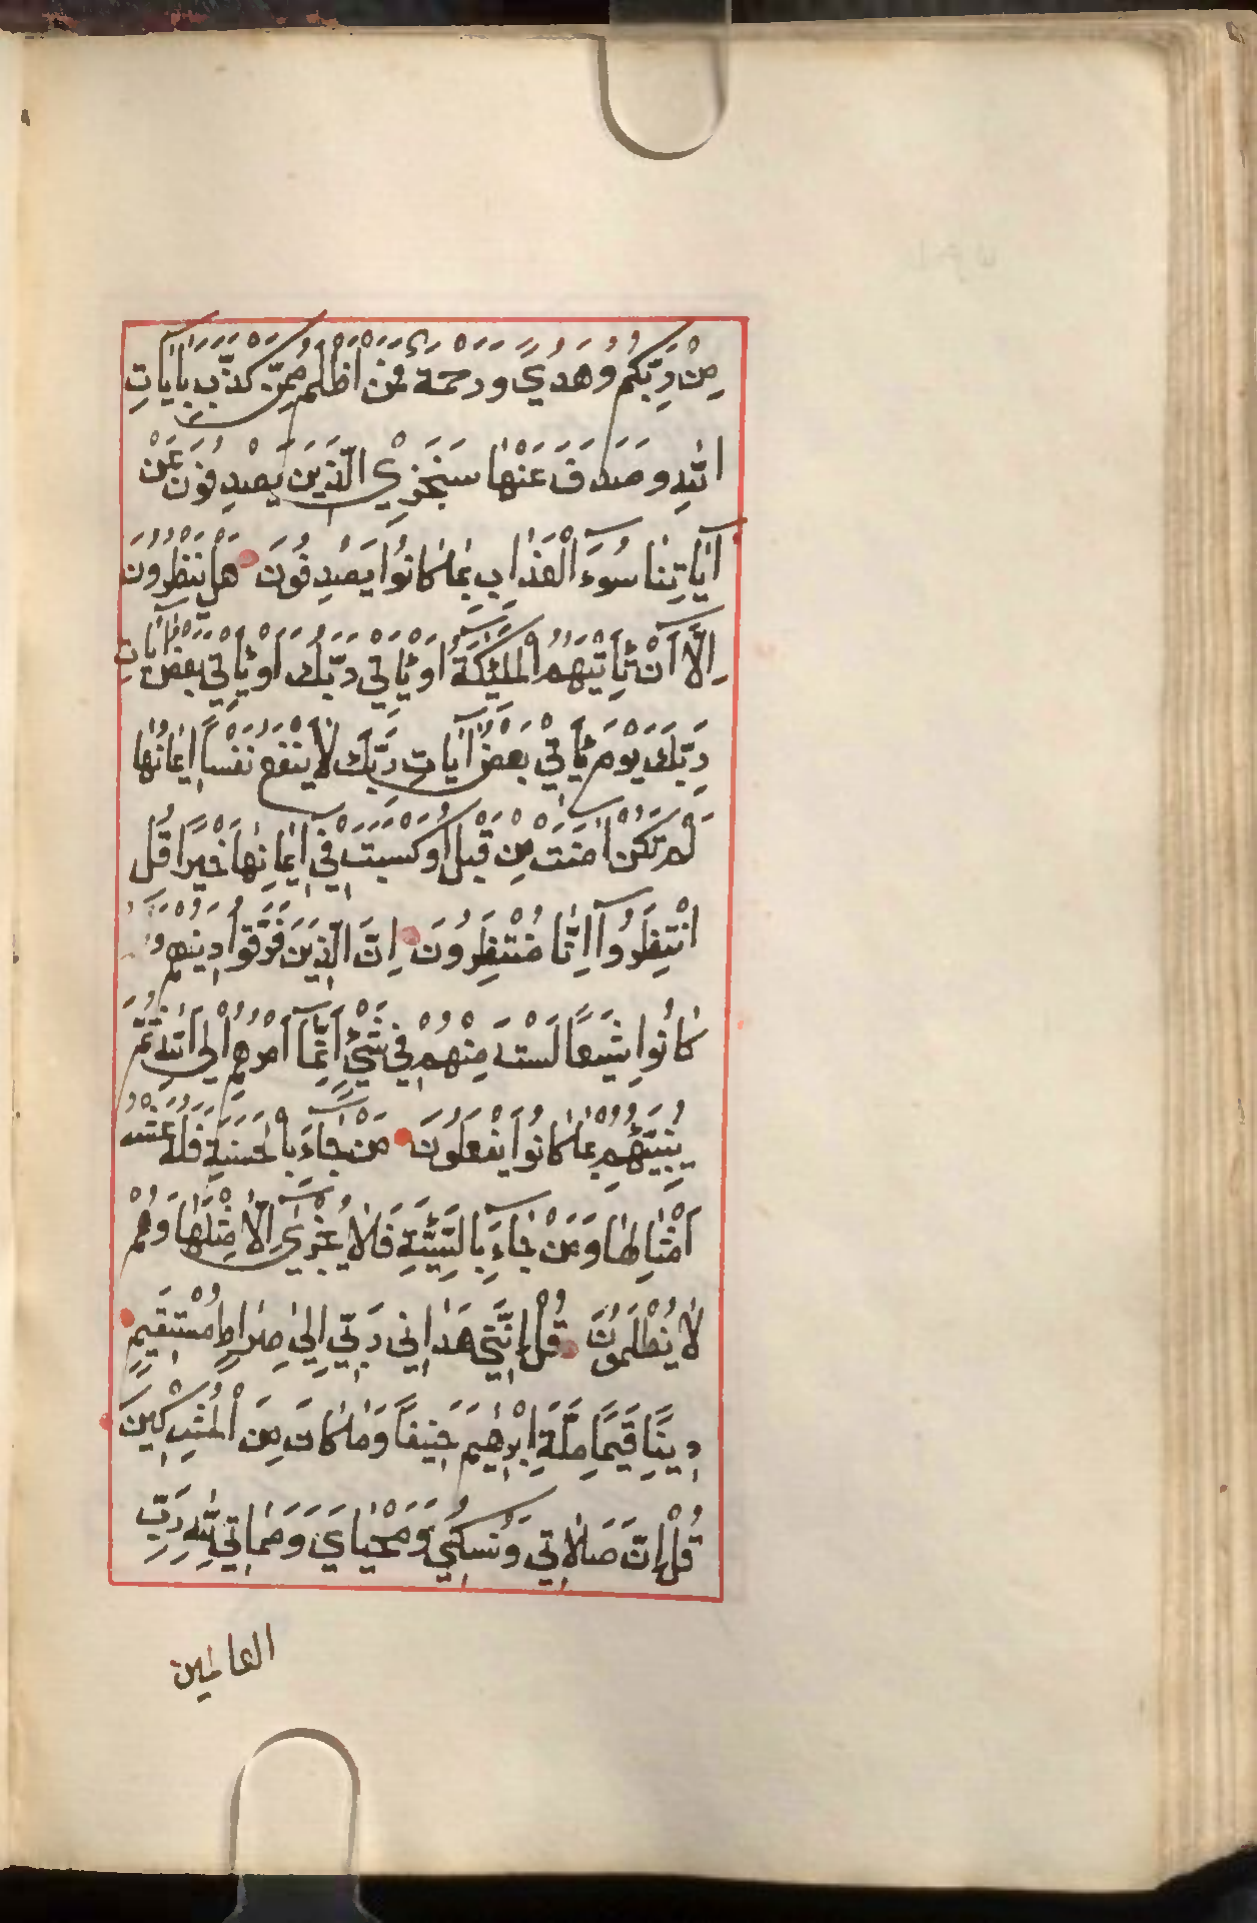 مِنْ رَبِّكُمْ وَهُدًي وَرَحْمَةٌ فَمَنْ اَظْلَمُ مِمَّنْ كَذَّبَ بِاٰيَاتِ
اللّٰهِ وَصَدَفَ عَنْهَا سَنَجْزِي الَّذِينَ يَصْدِفُونَ عَنْ
اٰيَاتِنَا سُوٓءَ الْعَذَابِ بِمَا كَانُوا يَصْدِفُونَ هَلْ يَنْظُرُونَ
اِلَّآ اَنْ تَاْتِيَهُمُ الْمَلٰٓئِكَةُ اَوْ يَاْتِيَ رَبُّكَ اَوْ يَاْتِيَ بَعْضُ اٰيَاتِ
رَبِّكَ يَوْمَ يَاْتِي بَعْضُ اٰيَاتِ رَبِّكَ لَا يَنْفَعُ نَفْسًا اِيمَانُهَا
لَمْ تَكُنْ اٰمَنَتْ مِنْ قَبْلُ اَوْ كَسَبَتْ فِي اِيمَانِهَا خَيْرًا قُلِ
انْتَظِرُوٓا اِنَّا مُنْتَظِرُونَ اِنَّ الَّذِينَ فَرَّقُوا دِينَهُمْ وَ
كَانُوا شِيَعًا لَسْتَ مِنْهُمْ فِي شَيْءٍ اِنَّمَآ اَمْرُهُمْ اِلَى اللّٰهِ ثُمَّ
يُنَبِّئُهُمْ بِمَا كَانُوا يَفْعَلُونَ مَنْ جَآءَ بِالْحَسَنَةِ فَلَهُ عَشْرُ
اَمْثَالِهَا وَمَنْ جَآءَ بِالسَّيِّئَةِ فَلَا يُجْزٰٓي اِلَّا مِثْلَهَا وَهُمْ
لَا يُظْلَمُونَ قُلْ اِنَّنِي هَدَانِي رَبِّي اِلٰي صِرَاطٍ مُسْتَقِيمٍ
دِينًا قِيَمًا مِلَّةَ اِبْرٰهِيمَ حَنِيفًا وَمَا كَانَ مِنَ الْمُشْرِكِينَ
قُلْ اِنَّ صَلَاتِي وَنُسُكِي وَمَحْيَايَ وَمَمَاتِي لِلّٰهِ رَبِّ
العالمين